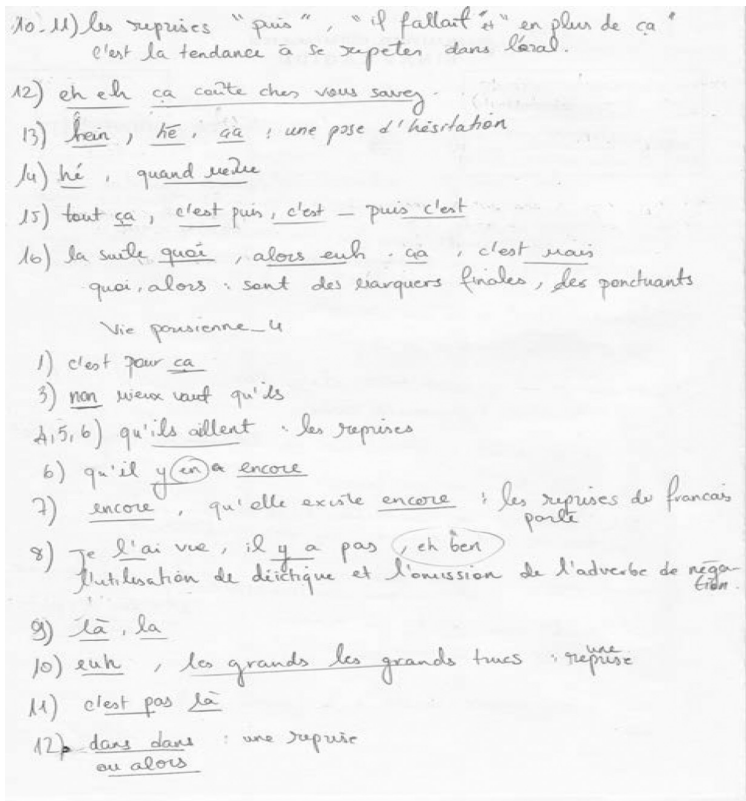 10-11) les reprises "puis", "il fallait" et "en plus de ça"
c'est la tendance à se repeter dans l'oral.
12) eh eh ça coûte cher vous savez.
13) hein, hé, ça : une pose d'hésitation
14) hé, quand même
15) tout ça, c'est puis, c'est - puis c'est
16) la suite quoi, alors euh. ça, c'est mais
quoi, alors : sont des marquers finales, des ponctuants
Vie parisienne_4
1) c'est pour ça
3) non mieux vaut qu'ils
4,5,6) qu'ils aillent : les reprises
6) qu'il y en a encore
7) encore, qu'elle existe encore : les reprises du francais
parlé
8) Je l'ai vue, il y a pas, eh ben
l'utilisation de déictique et l'omission de l'adverbe de néga-
tion.
9) là, la
10) euh, les grands les grands trucs : une reprise
11) c'est pas là
12) dans dans : une reprise
ou alors